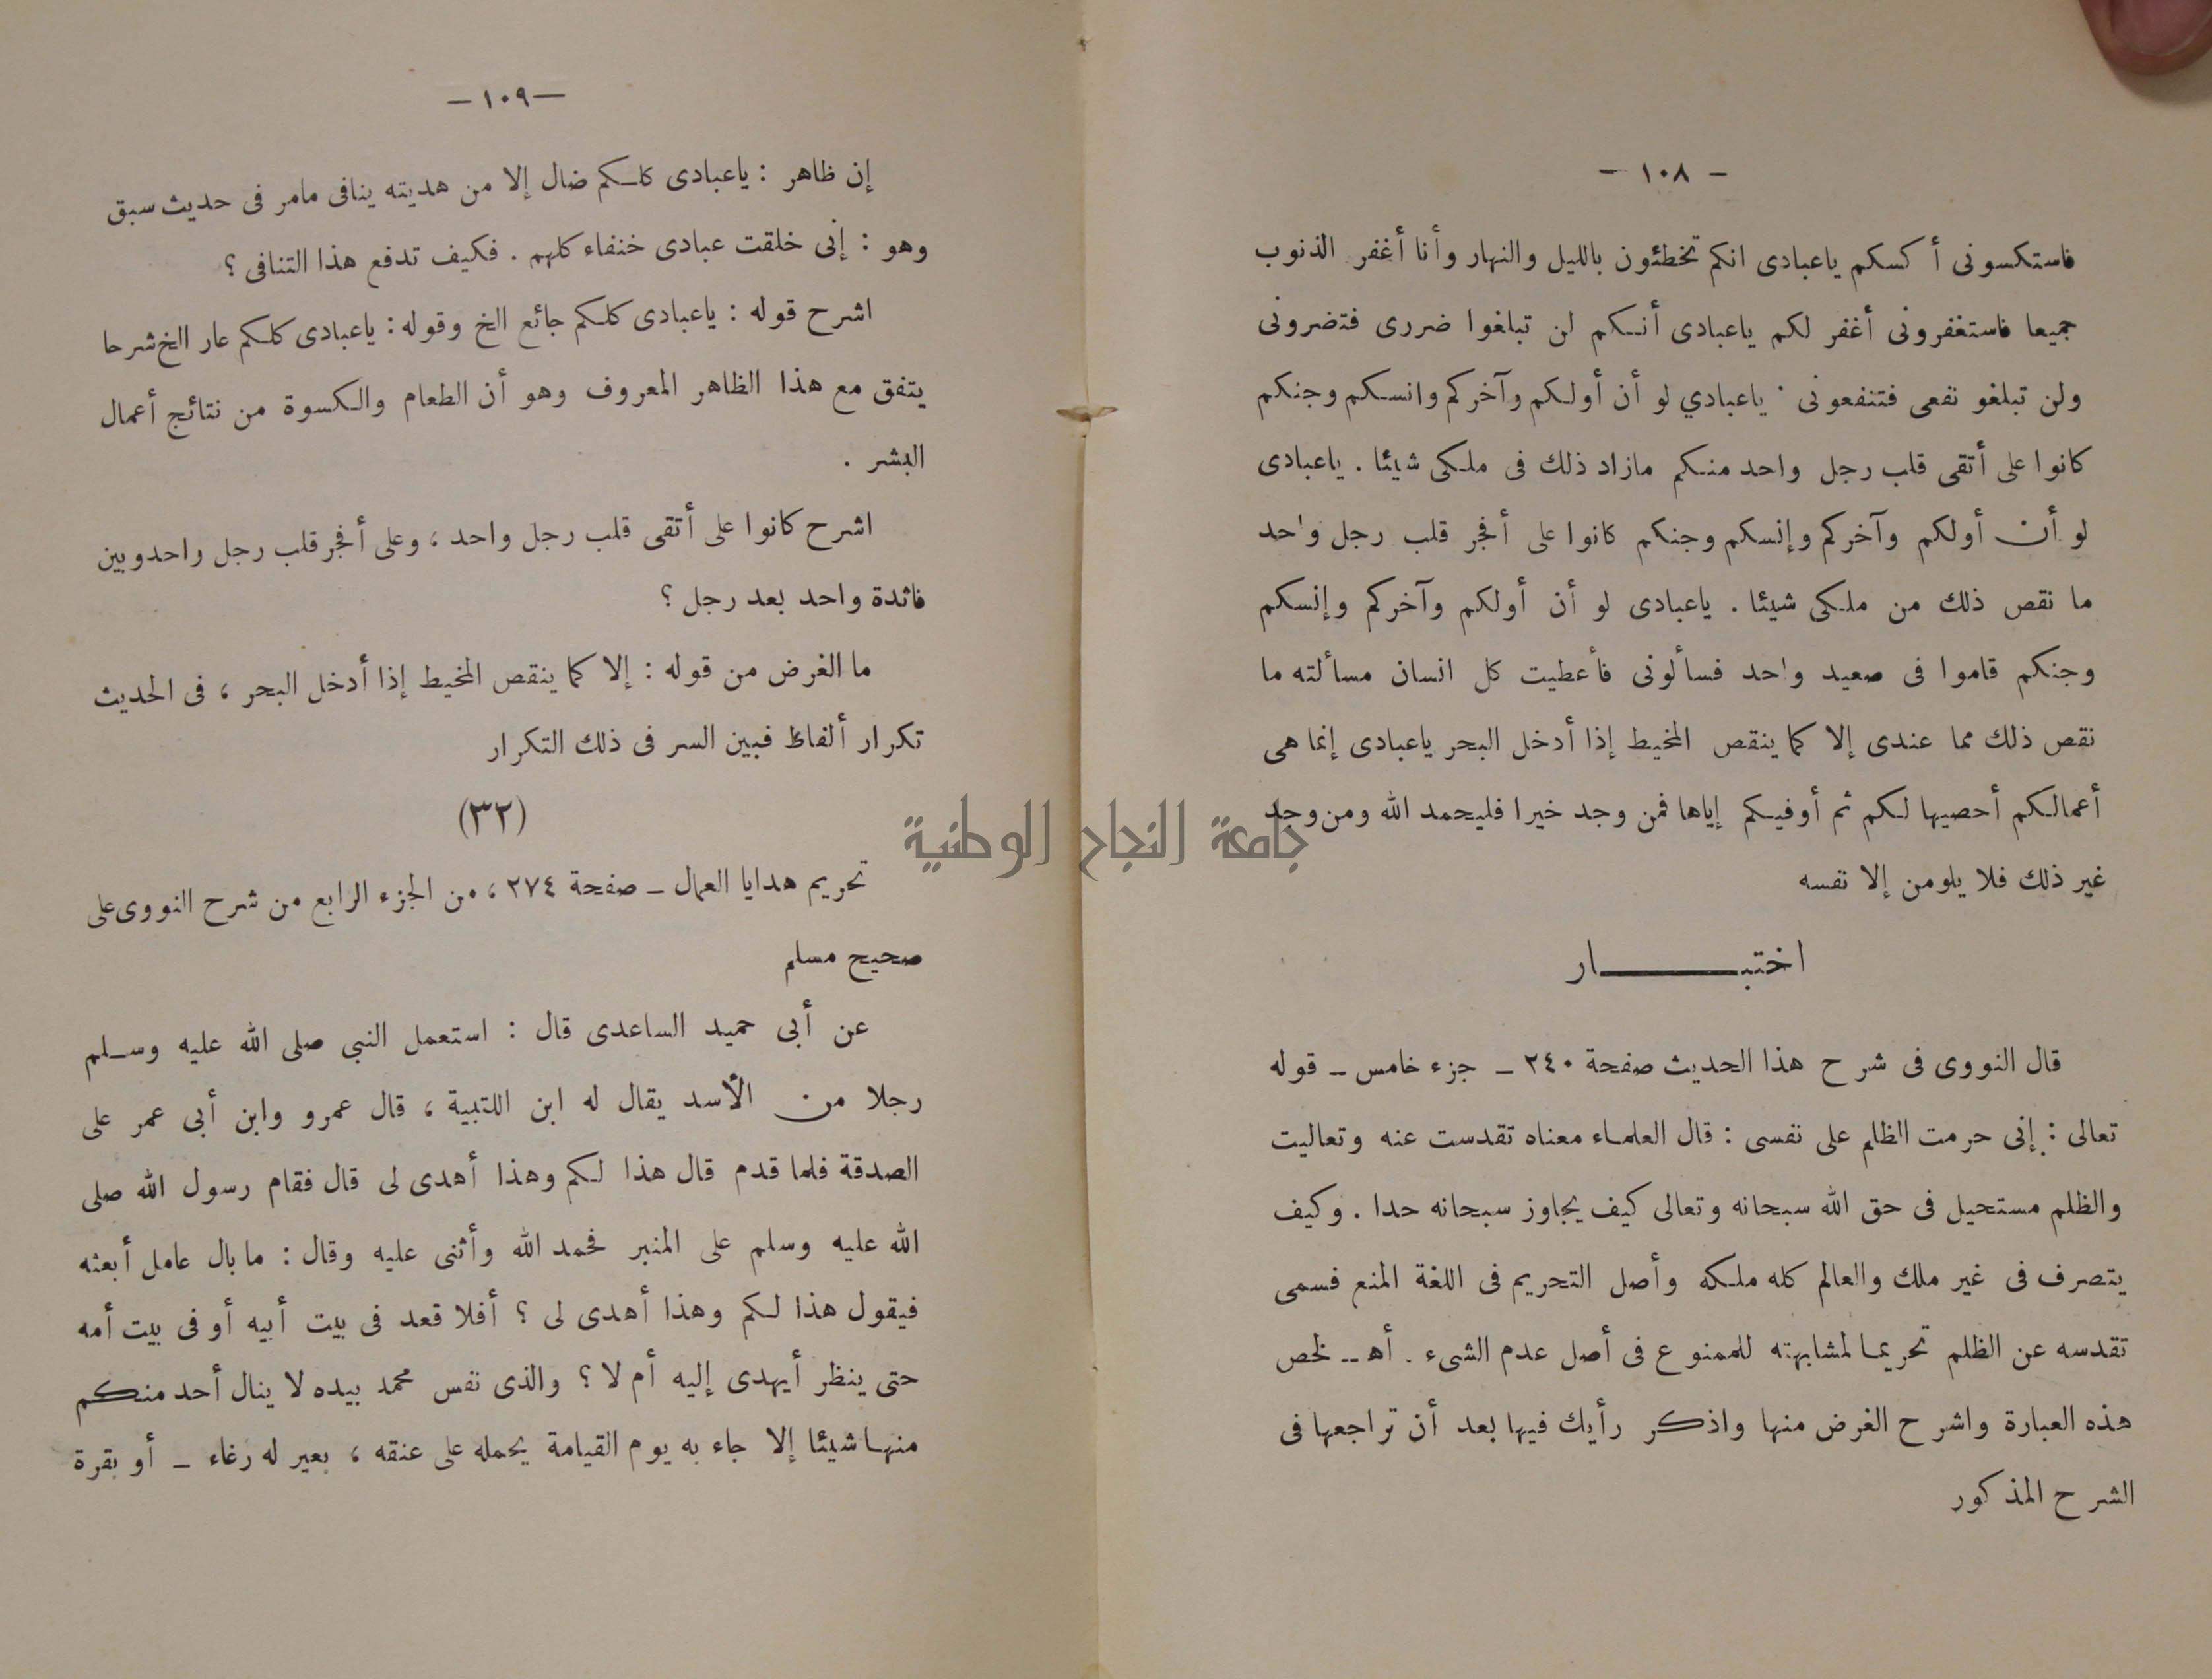 - ١٠٨ -
فاستكسونى أكسكم ياعبادى انكم تخطئون بالليل والنهار وأنا أغفر الذنوب
جميعا فاستغفرونى أغفر لكم ياعبادى أنكم لن تبلغوا ضررى فتضرونى
ولن تبلغو نفعى فتنفعونى . ياعبادي لو أن أولكم وآخركم وانسكم وجنكم
كانوا على أتقى قلب رجل واحد منكم مازاد ذلك فى ملكى شيئا . ياعبادى
لو أن أولكم وآخركم وإنسكم وجنكم كانوا على أفجر قلب رجل واحد
ما نقص ذلك من ملكى شيئا . ياعبادى لو أن أولكم وآخركم وإنسكم
وجنكم قاموا فى صعيد واحد فسألونى فأعطيت كل انسان مسألته ما
نقص ذلك مما عندى إلا كما ينقص المخيط إذا أدخل البحر ياعبادى إنما هى
أعمالكم أحصيها لكم ثم أوفيكم إياها فمن وجد خيرا فليحمد الله ومن وجد
غير ذلك فلا يلومن إلا نفسه
اختبار
قال النووى فى شرح هذا الحديث صفحة ٢٤٠ - جزء خامس - قوله
تعالى : إنى حرمت الظلم على نفسى : قال العلماء معناه تقدست عنه وتعاليت
والظلم مستحيل فى حق الله سبحانه وتعالى كيف يجاوز سبحانه حدا . وكيف
يتصرف فى غير ملك والعالم كله ملكه وأصل التحريم فى اللغة المنع فسمى
تقدسه عن الظلم تحريما لمشابهته للممنوع فى أصل عدم الشىء . أهـ - لخص
هذه العبارة واشرح الغرض منها واذكر رأيك فيها بعد أن تراجعها فى
الشرح المذكور
— ١٠٩ —
إن ظاهر : ياعبادى كلكم ضال إلا من هديته ينافى مامر فى حديث سبق
وهو : إنى خلقت عبادى خنفاء كلهم . فكيف تدفع هذا التنافى ؟
اشرح قوله : ياعبادى كلكم جائع الخ وقوله : ياعبادى كلكم عار الخ شرحا
يتفق مع هذا الظاهر المعروف وهو أن الطعام والكسوة من نتائج أعمال
البشر .
اشرح كانوا على أتقى قلب رجل واحد ، وعلى أفجر قلب رجل راحدوبين
فائدة واحد بعد رجل ؟
ما الغرض من قوله : إلا كما ينقص المخيط إذا أدخل البحر ، فى الحديث
تكرار ألفاظ فبين السر فى ذلك التكرار
(٣٢)
تحريم هدايا العمال - صفحة ٢٧٤ ، من الجزء الرابع من شرح النووى على
صحيح مسلم
عن أبى حميد الساعدى قال : استعمل النبى صلى الله عليه وسلم
رجلا من الأسد يقال له ابن اللتبية ، قال عمرو وابن أبى عمر على
الصدقة فلما قدم قال هذا لكم وهذا أهدى لى قال فقام رسول الله صلى
الله عليه وسلم على المنبر فحمد الله وأثنى عليه وقال : مابال عامل أبعثه
فيقول هذا لكم وهذا أهدى لى ؟ أفلا قعد فى بيت أبيه أو فى بيت أمه
حتى ينظر أيهدى إليه أم لا ؟ والذى نفس محمد بيده لا ينال أحد منكم
منها شيئا إلا جاء به يوم القيامة يحمله على عنقه ، بعير له رغاء - أو بقرة
جامعة النجاح الوطنية